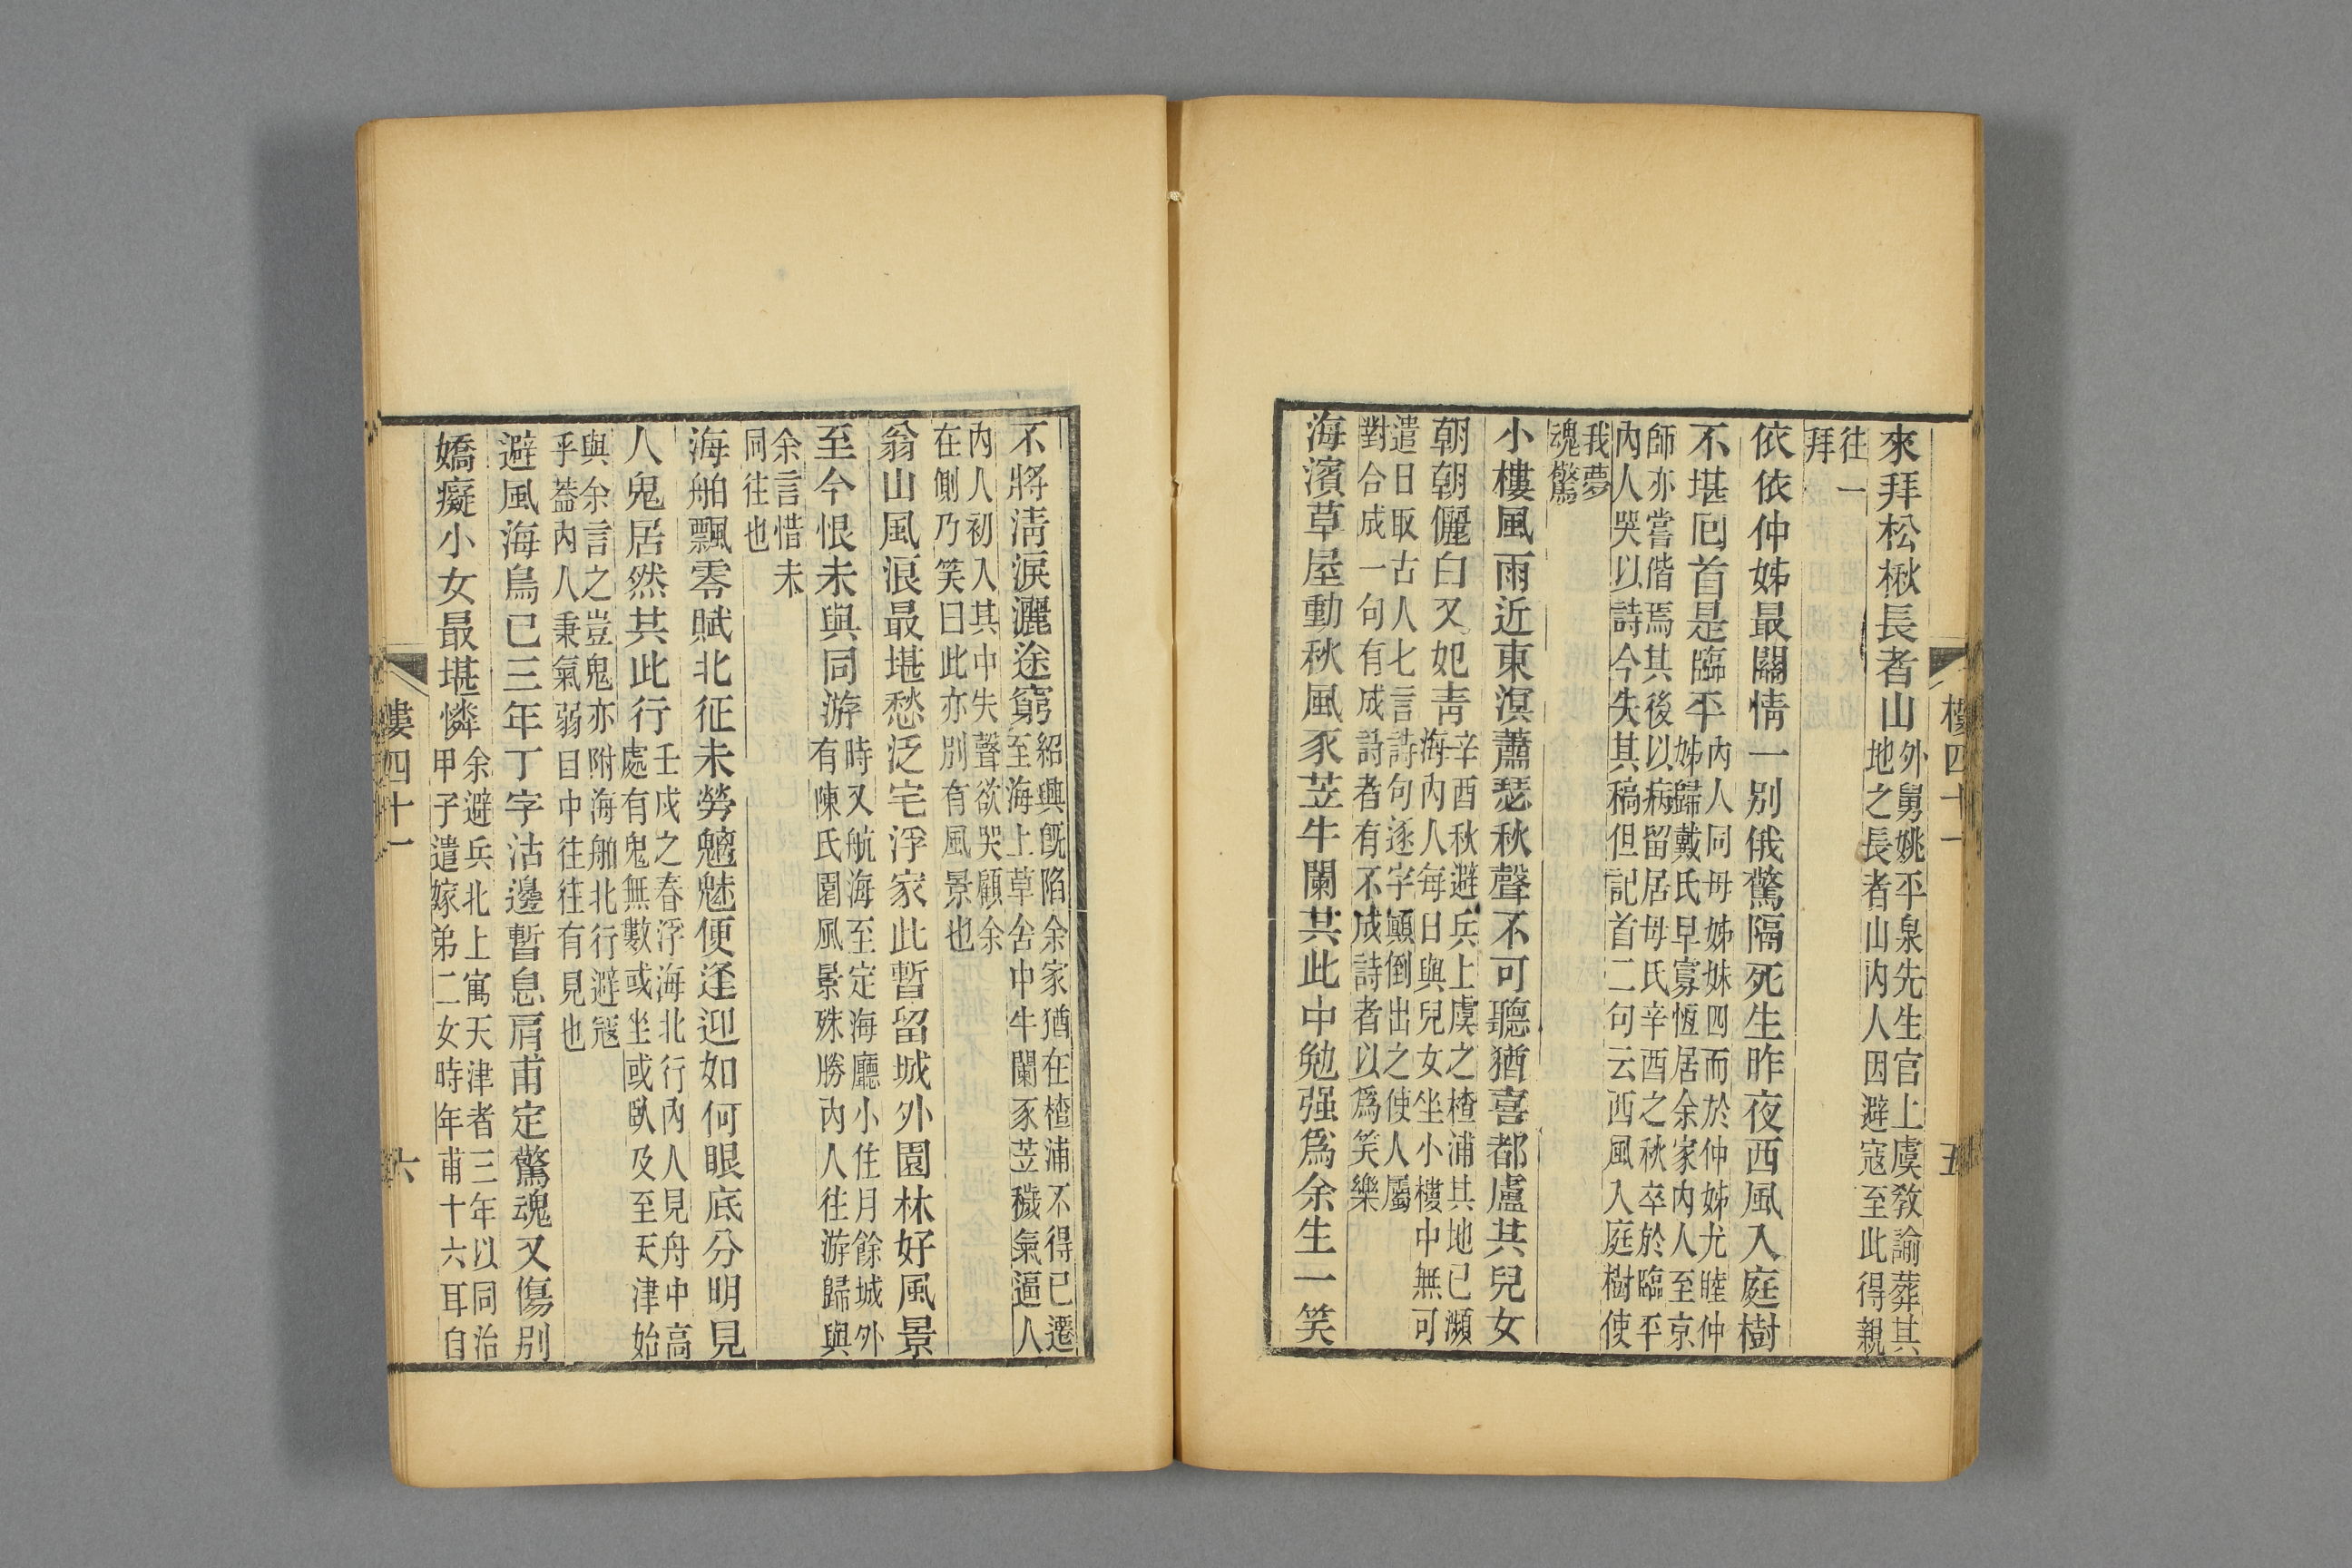 樓四十一
五
來拜松楸長者山外舅姚平泉先生官上虞敎諭葬其
地之長者山內人因避寇至此得親
往一
拜
依依仲姊最關情一別俄驚隔死生昨夜西風入庭樹
不堪回首是臨平內人同母姊妹四而於仲姊尤睦仲
姊歸戴氏早寡恆居余家內人至京
師亦嘗偕焉其後以病留居母氏辛酉之秋卒於臨平
內人哭以詩今失其稿但記首二句云西風入庭樹使
我夢
魂驚
小樓風雨近東溟蕭瑟秋聲不可聽猶喜都盧共兒女
朝朝儷白又妃靑辛酉秋避兵上虞之楂浦其地已瀕
海內人每日與兒女坐小樓中無可
遣日取古人七言詩句逐字顚倒出之使人屬
對合成一句有成詩者有不成詩者以爲笑樂
海濱草屋動秋風豕苙牛闌共此中勉强爲余生一笑
不將淸淚灑途窮紹興旣陷余家猶在楂浦不得已遷
至海上草舍中牛闌豕苙穢氣逼人
內人初入其中失聲欲哭顧余
在側乃笑曰此亦別有風景也
翁山風浪最堪愁泛宅浮家此暫留城外園林好風景
至今恨未與同游時又航海至定海廳小住月餘城外
有陳氏園風景殊勝內人往游歸與
余言惜未
同往也
海舶飄零賦北征未勞魑魅便逢迎如何眼底分明見
人鬼居然共此行壬戌之春浮海北行內人見舟中高
處有鬼無數或坐或臥及至天津始
與余言之豈鬼亦附海舶北行避寇
乎葢內人秉氣弱日中往往有見也
避風海鳥已三年丁字沽邊暫息肩甫定驚魂又傷別
嬌癡小女最堪憐余避兵北上寓天津者三年以同治
甲子遣嫁弟二女時年甫十六耳自
樓四十一
六